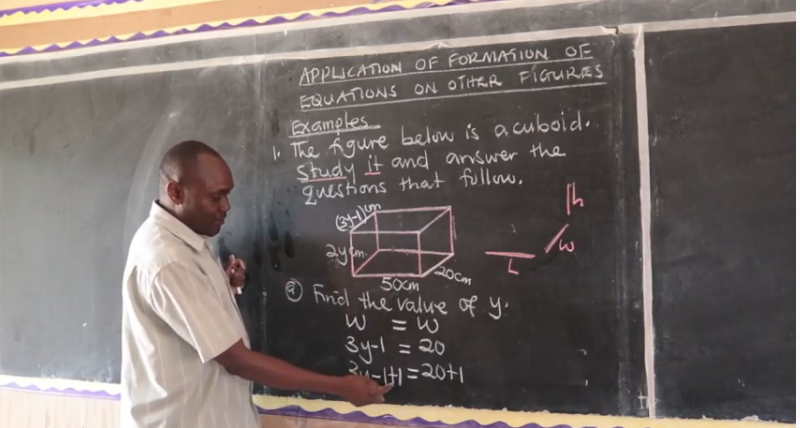 APPLICATION OF FORMATION OF
EQUATIONS ON OTHER FIGURES
Examples
1. The figure below is a cuboid.
study it and answer the
questions that follow.
(3y-1)cm
2ycm
50cm
20cm
h
w
L
a) Find the value of y.
W = W
3y-1 = 20
3y-1+1 = 20+1